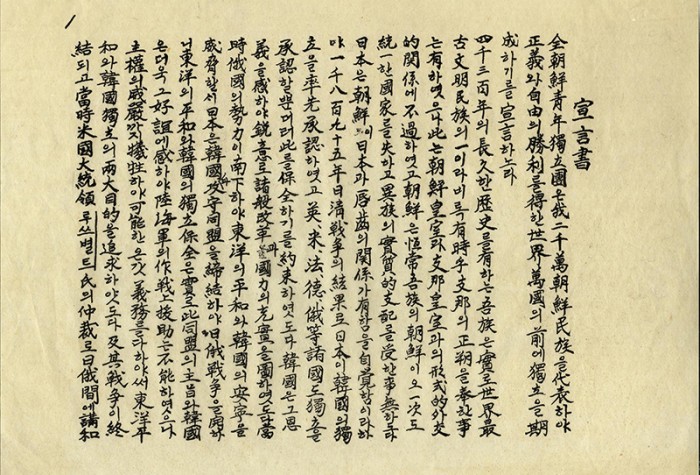 宣言書
全朝鮮青年獨立團은我二千萬朝鮮民族을代表하야
正義와自由의勝利를得한世界萬國의前에獨立을期
成하기를宣言하노라
四千三百年의長久한歷史를有하는吾族은實로世界最
古文明民族의一이라비록有時乎支那의正朔을奉한事
는有하엿으나此는朝鮮皇室과支那皇室과의形式的外交
的關係에不過하엿고朝鮮은恒常吾族의朝鮮이오一次도
統一한國家를失하고異族의實質的支配를受한事無하도다
日本은朝鮮이日本과唇齒의關係가有함을自覺함이라하
야一千八百九十五年日清戰爭의結果로日本이韓國의獨
立을率先承認하엿고英、米、法、德、俄等諸國도獨立을
承認할뿐더러此를保全하기를約束하엿도다韓國은그恩
義을感하야銳意로諸般改革과國力의充實을圖하엿도다當
時俄國의勢力이南下하야東洋의平和와韓國의安寧을
威脅할세日本은韓國과攻守同盟을締結하야日俄戰爭을開하
니東洋의平和와韓國의獨立保全은實로此同盟의主旨와韓國
은더욱그好誼에感하야陸海軍의作戰上援助는不能하엿으나
主權의威嚴까지犧牲하야可能한온갓義務를다하야써東洋平
和와韓國獨立의兩大目的을追求하얏도다及其戰爭이終
結되고當時米國大統領루쓰벨트氏의仲裁로日俄間에講和
1